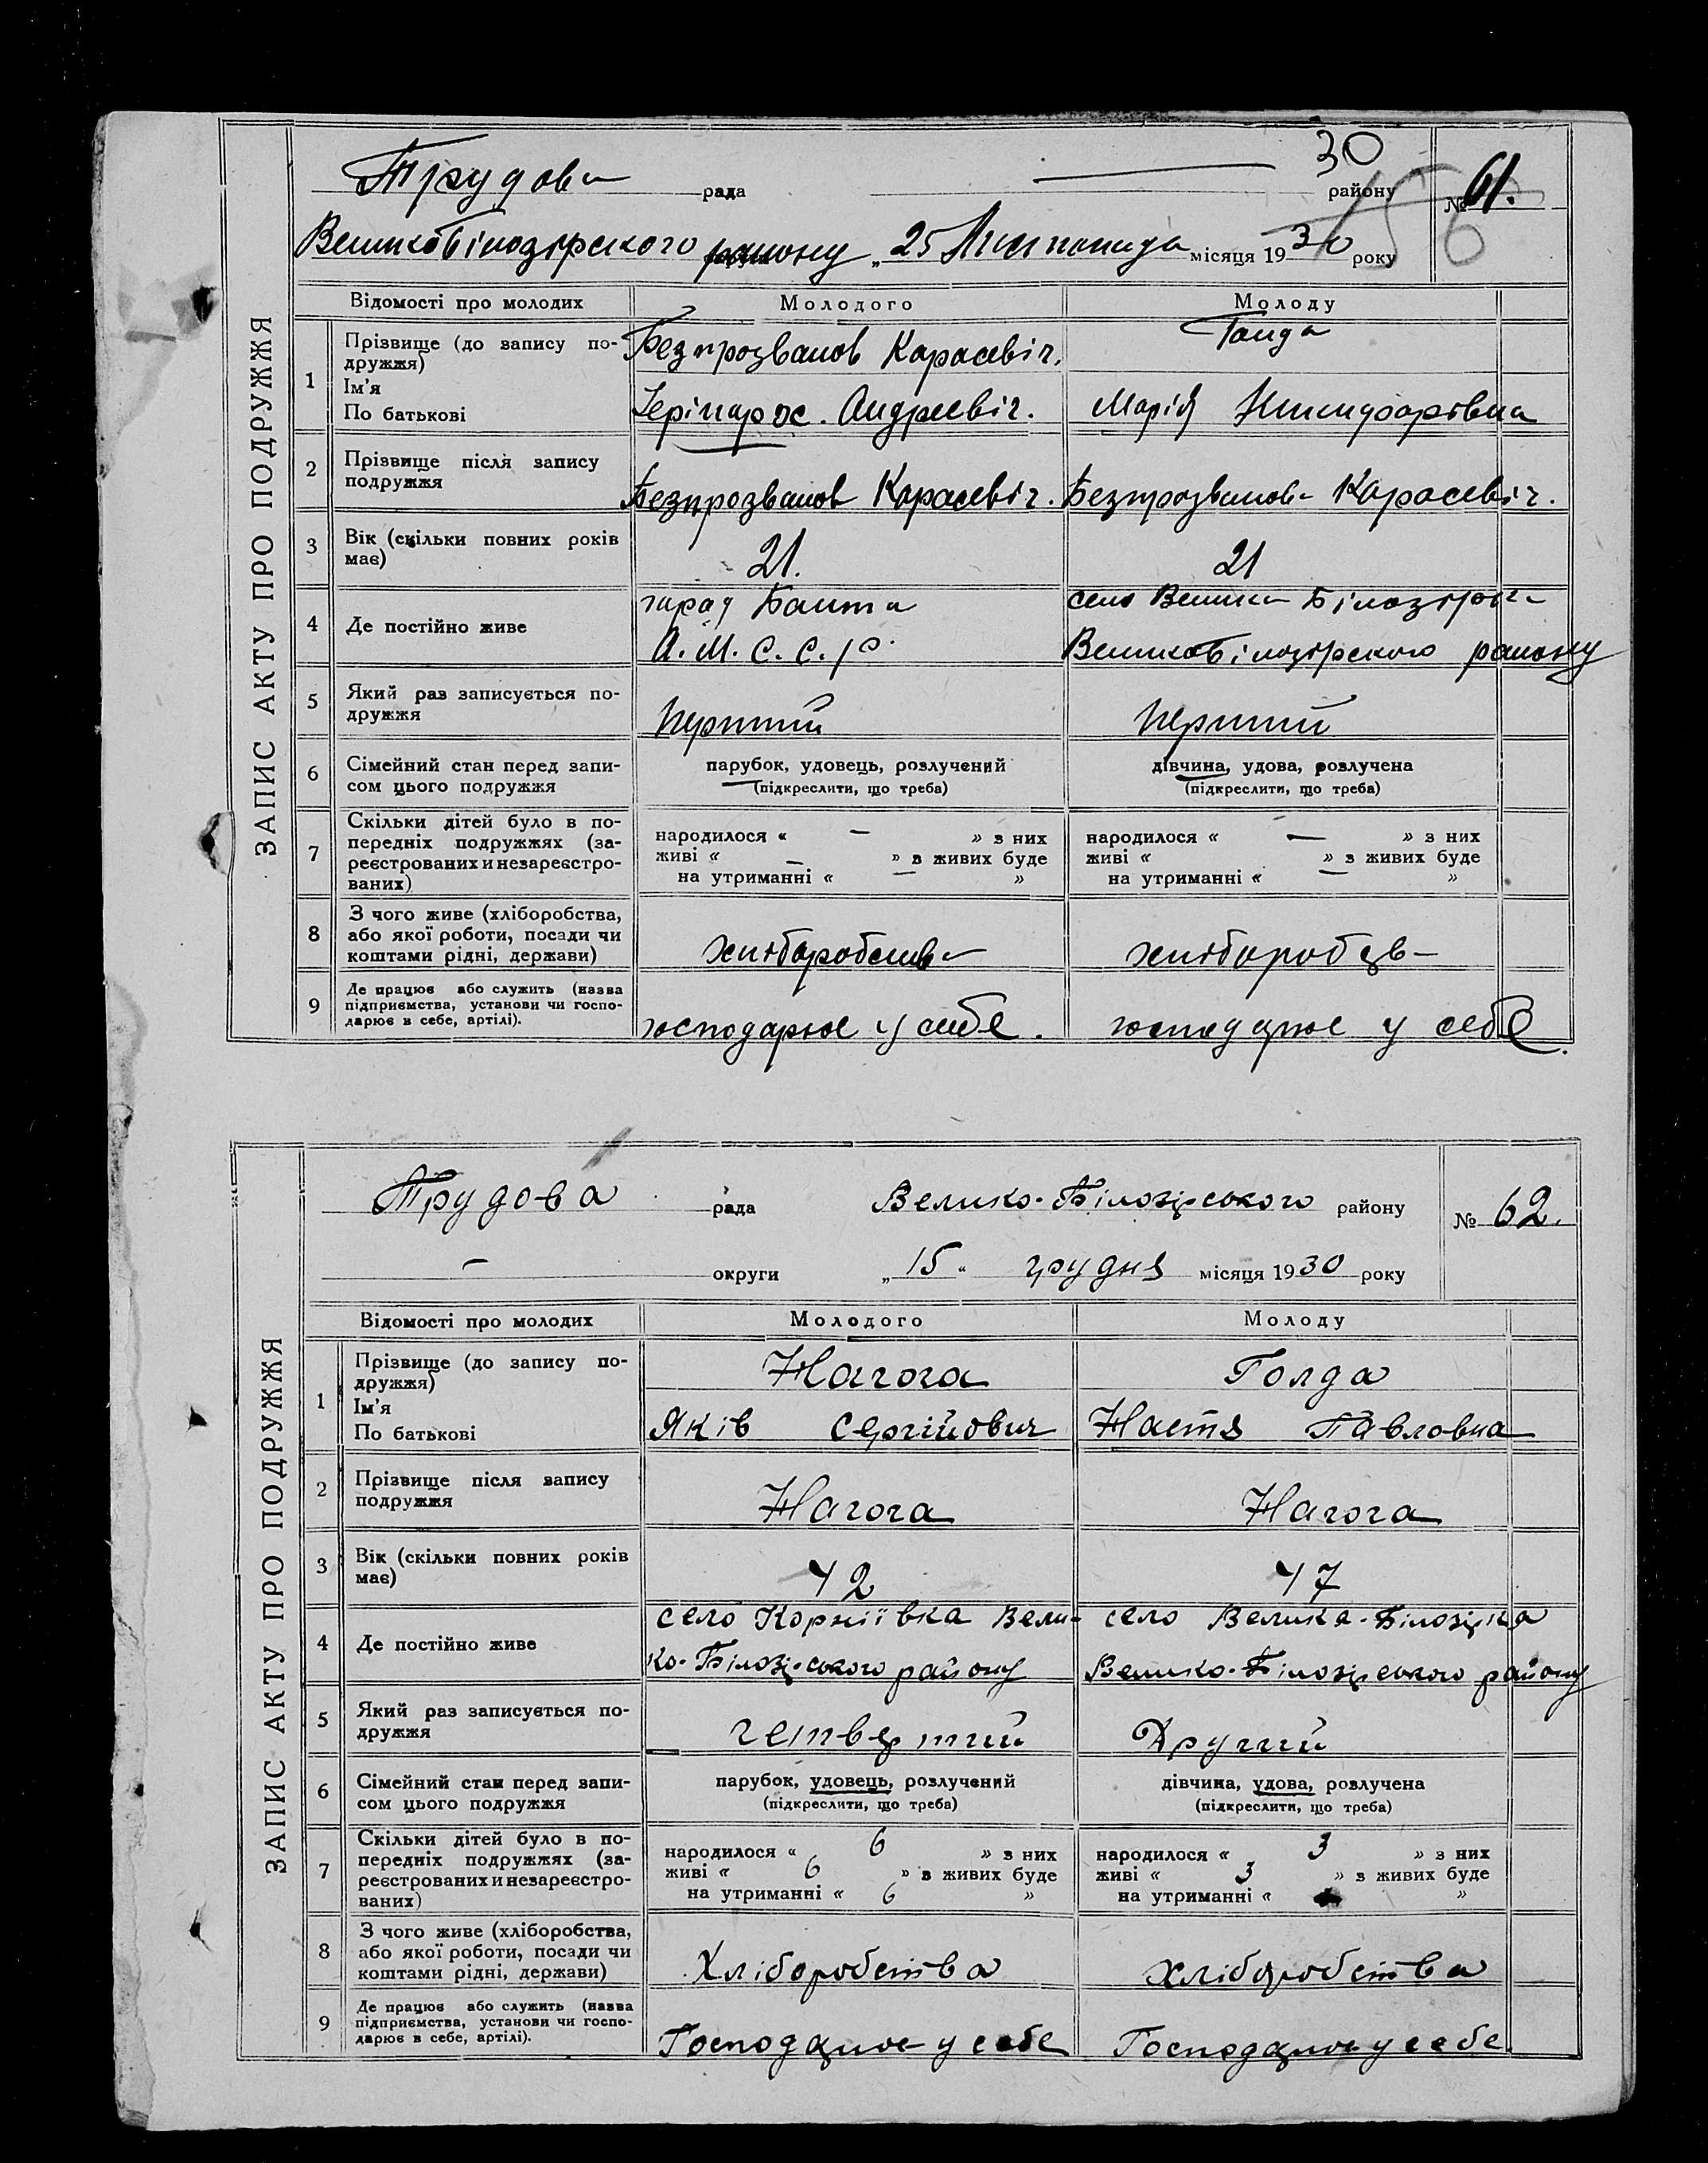 30
Трудова рада района
району
№ 61.
Великобілозірського району „ 25 Листопада місяця 1930 року
156
ЗАПИС АКТУ ПРО ПОДРУЖЖЯ
Відомості про молодих Молодого Молоду
1 Прізвище (до запису по-
дружжя)
Ім'я
По батькові
Безпрозванов Карасевіч.
Андреевіч.
Гонда
Марія Никифорівна
2 Прізвище після запису
подружжя
Безпрозванов Карасевіч. Безпрозванова Карасевіч.
3 Вік (скільки повних років
має)
21. 21
4 Де постійно живе
город Балта
А.М.С.С.Р.
село Велика Білозірка
Великобілозірского району
5 Який раз записується по-
дружжя
перший перший
6 Сімейний стан перед запи-
сом цього подружжя
парубок, удовець, розлучений
(підкреслити, що треба)
дівчина, удова, розлучена
(підкреслити, що треба)
7 Скільки дітей було в по-
передніх подружжях (за-
реєстрованих и незареєстро-
ваних)
народилося « — » з них
живі « — » з живих буде
на утриманні « — »
народилося « — » з них
живі « » з живих буде
на утриманні « — »
8 З чого живе (хліборобства,
або якої роботи, посади чи
коштами рідні, держави)
хліборобства хліборобств
9 Де працює або служить (назва
підприємства, установи чи госпо-
дарює в себе, артілі).
господарює у себе. господарює у себе.
ЗАПИС АКТУ ПРО ПОДРУЖЖЯ
Трудова рада Велико-Білозірського району № 62.
— округи „ 15 “ грудня місяця 1930 року
Відомості про молодих Молодого Молоду
1 Прізвище (до запису по-
дружжя)
Ім'я
По батькові
Нагога
Яків Сергійович
Голда
Настя Павловна
2 Прізвище після запису
подружжя
Нагога Нагога
3 Вік (скільки повних років
має)
42 47
4 Де постійно живе
село Корніївка Вели-
ко-Білозірського району
село Велика-Білозірка
Велико-Білозірського району
5 Який раз записується по-
дружжя
четвертий Другий
6 Сімейний стан перед запи-
сом цього подружжя
парубок, удовець, розлучений
(підкреслити, що треба)
дівчина, удова, розлучена
(підкреслити, що треба)
7 Скільки дітей було в по-
передніх подружжях (за-
реєстрованих и незареєстро-
ваних)
народилося « 6 » з них
живі « 6 » з живих буде
на утриманні « 6 »
народилося « 3 » з них
живі « 3 » з живих буде
на утриманні « »
8 З чого живе (хліборобства,
або якої роботи, посади чи
коштами рідні, держави)
Хліборобства хліборобства
9 Де працює або служить (назва
підприємства, установи чи госпо-
дарює в себе, артілі).
Господарює у себе Господарює у себе